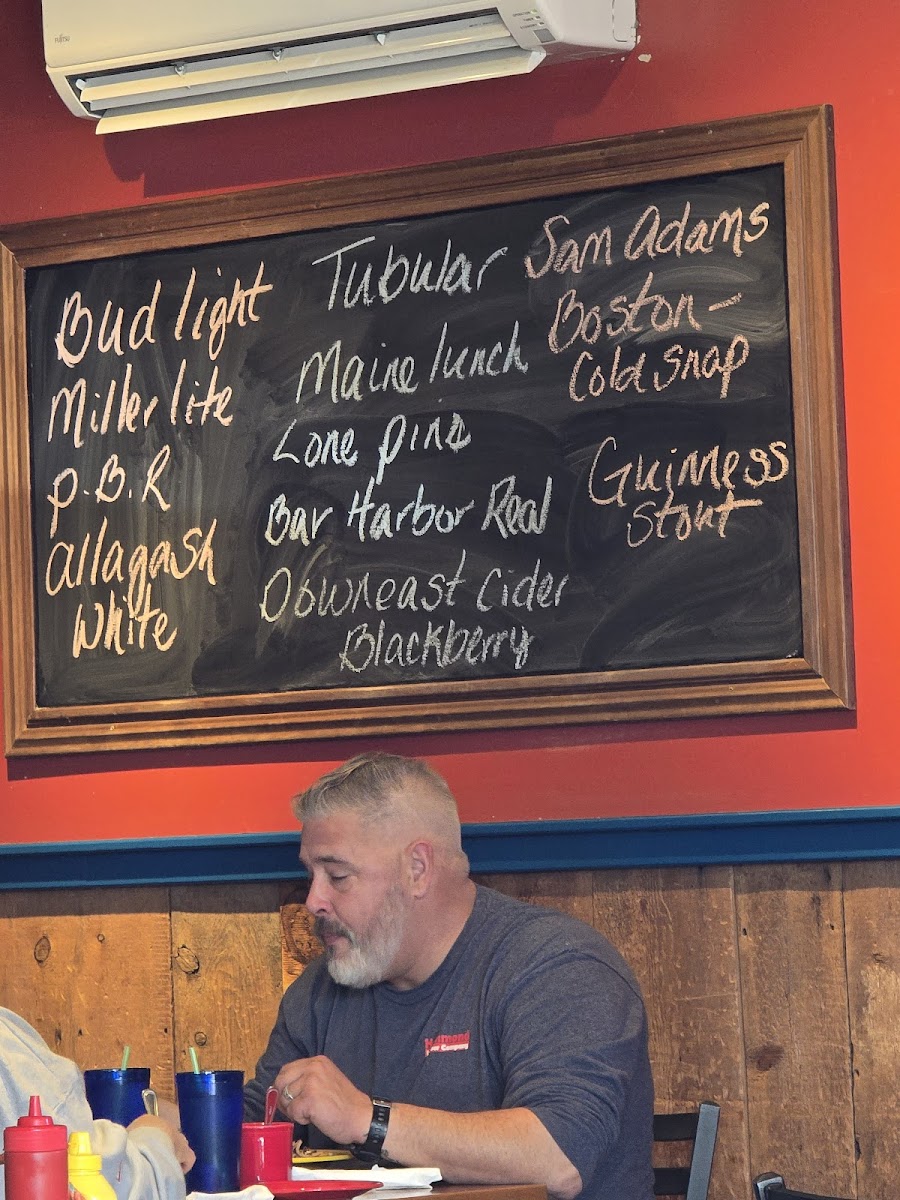 FUJITSU
Bud light
Miller lite
P.B.R
allagash
White
Tubular
Maine lunch
Lone pine
Bar Harbor Real
Downeast Cider
Blackberry
Sam Adams
Boston -
Cold snap
Guinness
Stout
Company